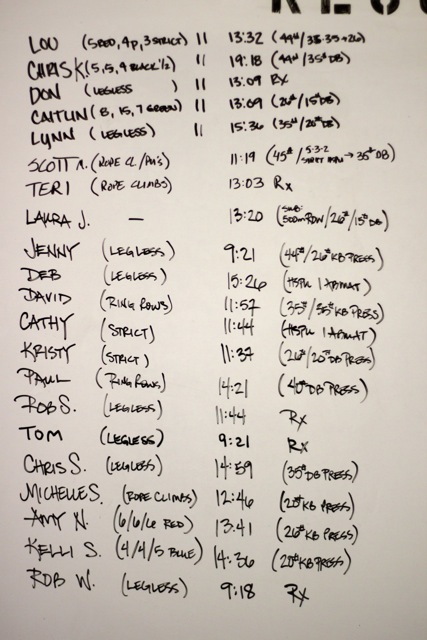 LOU (5 RED, 4P, 3 STRICT) 11 13:32 (44#/35
CHRIS K. (5, 5, 4 BLACK 1/2) 11 19:18 (44#/35# DB)
DON (LEGLESS) 11 13:09 RX
CAITLIN (8, 15, 7 GREEN) 11 13:09 (26#/15# DB)
LYNN (LEGLESS) 11 15:36 (35#/20# DB)
SCOTT (ROPE CL./PU'S) 11:19 (45#/5-3-2 → 35# DB)
TERI (ROPE CLIMBS) 13:03 Rx
LAURA J. — 13:20 (SUB: 500M ROW/26#/15# DB)
JENNY (LEGLESS) 9:21 (44#/26# KB PRESS)
DEB (LEGLESS) 15:26 (HSPU 1 ABMAT)
DAVID (RING ROWS) 11:57 (35#/35# KB PRESS)
CATHY (STRICT) 11:44 (HSPU 1 ABMAT)
KRISTY (STRICT) 11:37 (26#/20# DB PRESS)
PAUL (RING ROWS) 14:21 (40# DB PRESS)
ROB S. (LEGLESS) 11:44 Rx
TOM (LEGLESS) 9:21 Rx
CHRIS S. (LEGLESS) 14:59 (35# DB PRESS)
MICHELLE S. (ROPE CLIMBS) 12:46 (20# KB PRESS)
AMY N. (6/6/6 RED) 13:41 (26# KB PRESS)
KELLI S. (4/4/5 BLUE) 14:36 (20# KB PRESS)
ROB W. (LEGLESS) 9:18 Rx